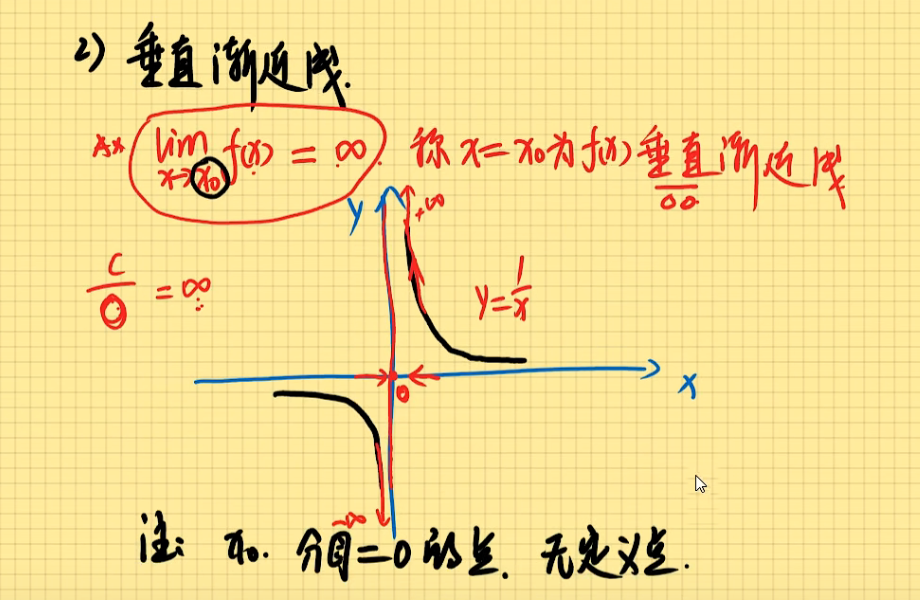 2) 垂直渐近线.
lim x→x₀ f(x) = ∞. 称 x = x₀ 为 f(x) 垂直渐近线
y +∞
C/0 = ∞
y = 1/x
0
x
-∞
注: x₀. 分母=0 的点. 无定义点.